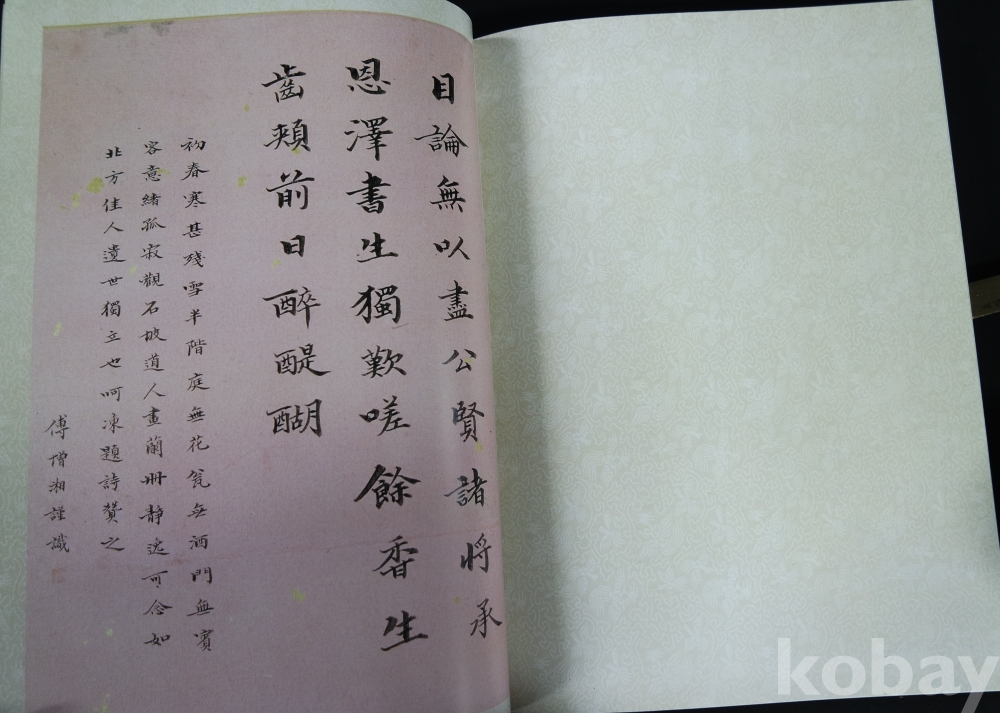 目論無以盡公賢諸將承
恩澤書生獨歎嗟餘香生
齒頰前日醉醍醐
初春寒甚殘雪半階庭無花瓮無酒門無賓
容意緒孤寂觀石坡道人畫蘭冊靜逸可念如
北方佳人遺世獨立也呵凍題詩贊之
傅增湘謹識
kobay